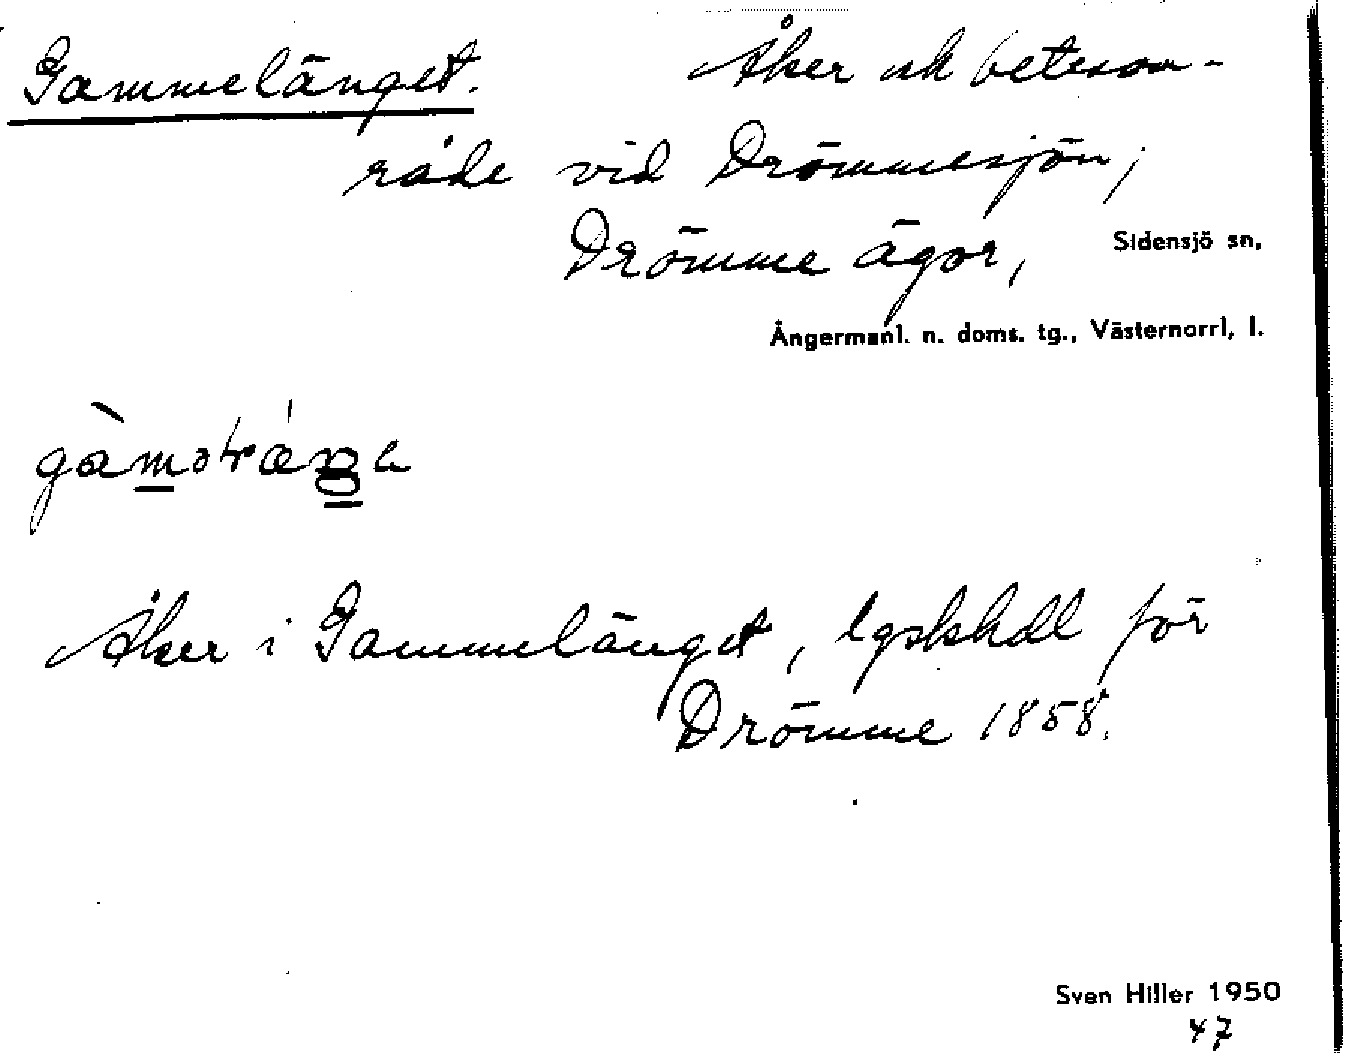 Gammelänget. Åker ok betesom-
råde vid Drömmesjön,
Drömme ägor, Sidensjö sn,
Ångermanl. n. doms. tg., Västernorrl. l.
Åker i Gammelänget, lgskhdl för
Drömme 1858.
Sven Hiller 1950
47